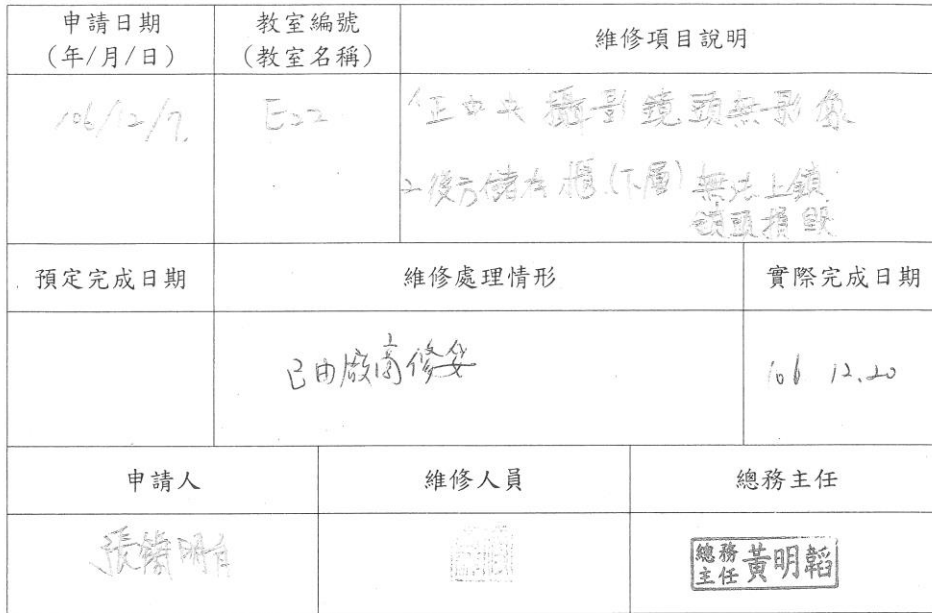 申請日期
(年/月/日)
教室編號
(教室名稱)
維修項目說明
106/12/7.
E22
1.正中央攝影鏡頭無影像
2.後方儲存櫃(下層)無法上鎖
鎖頭損毀
預定完成日期
維修處理情形
實際完成日期
已由廠商修妥
106 12.20
申請人
維修人員
總務主任
張
總務
主任
黃明韜